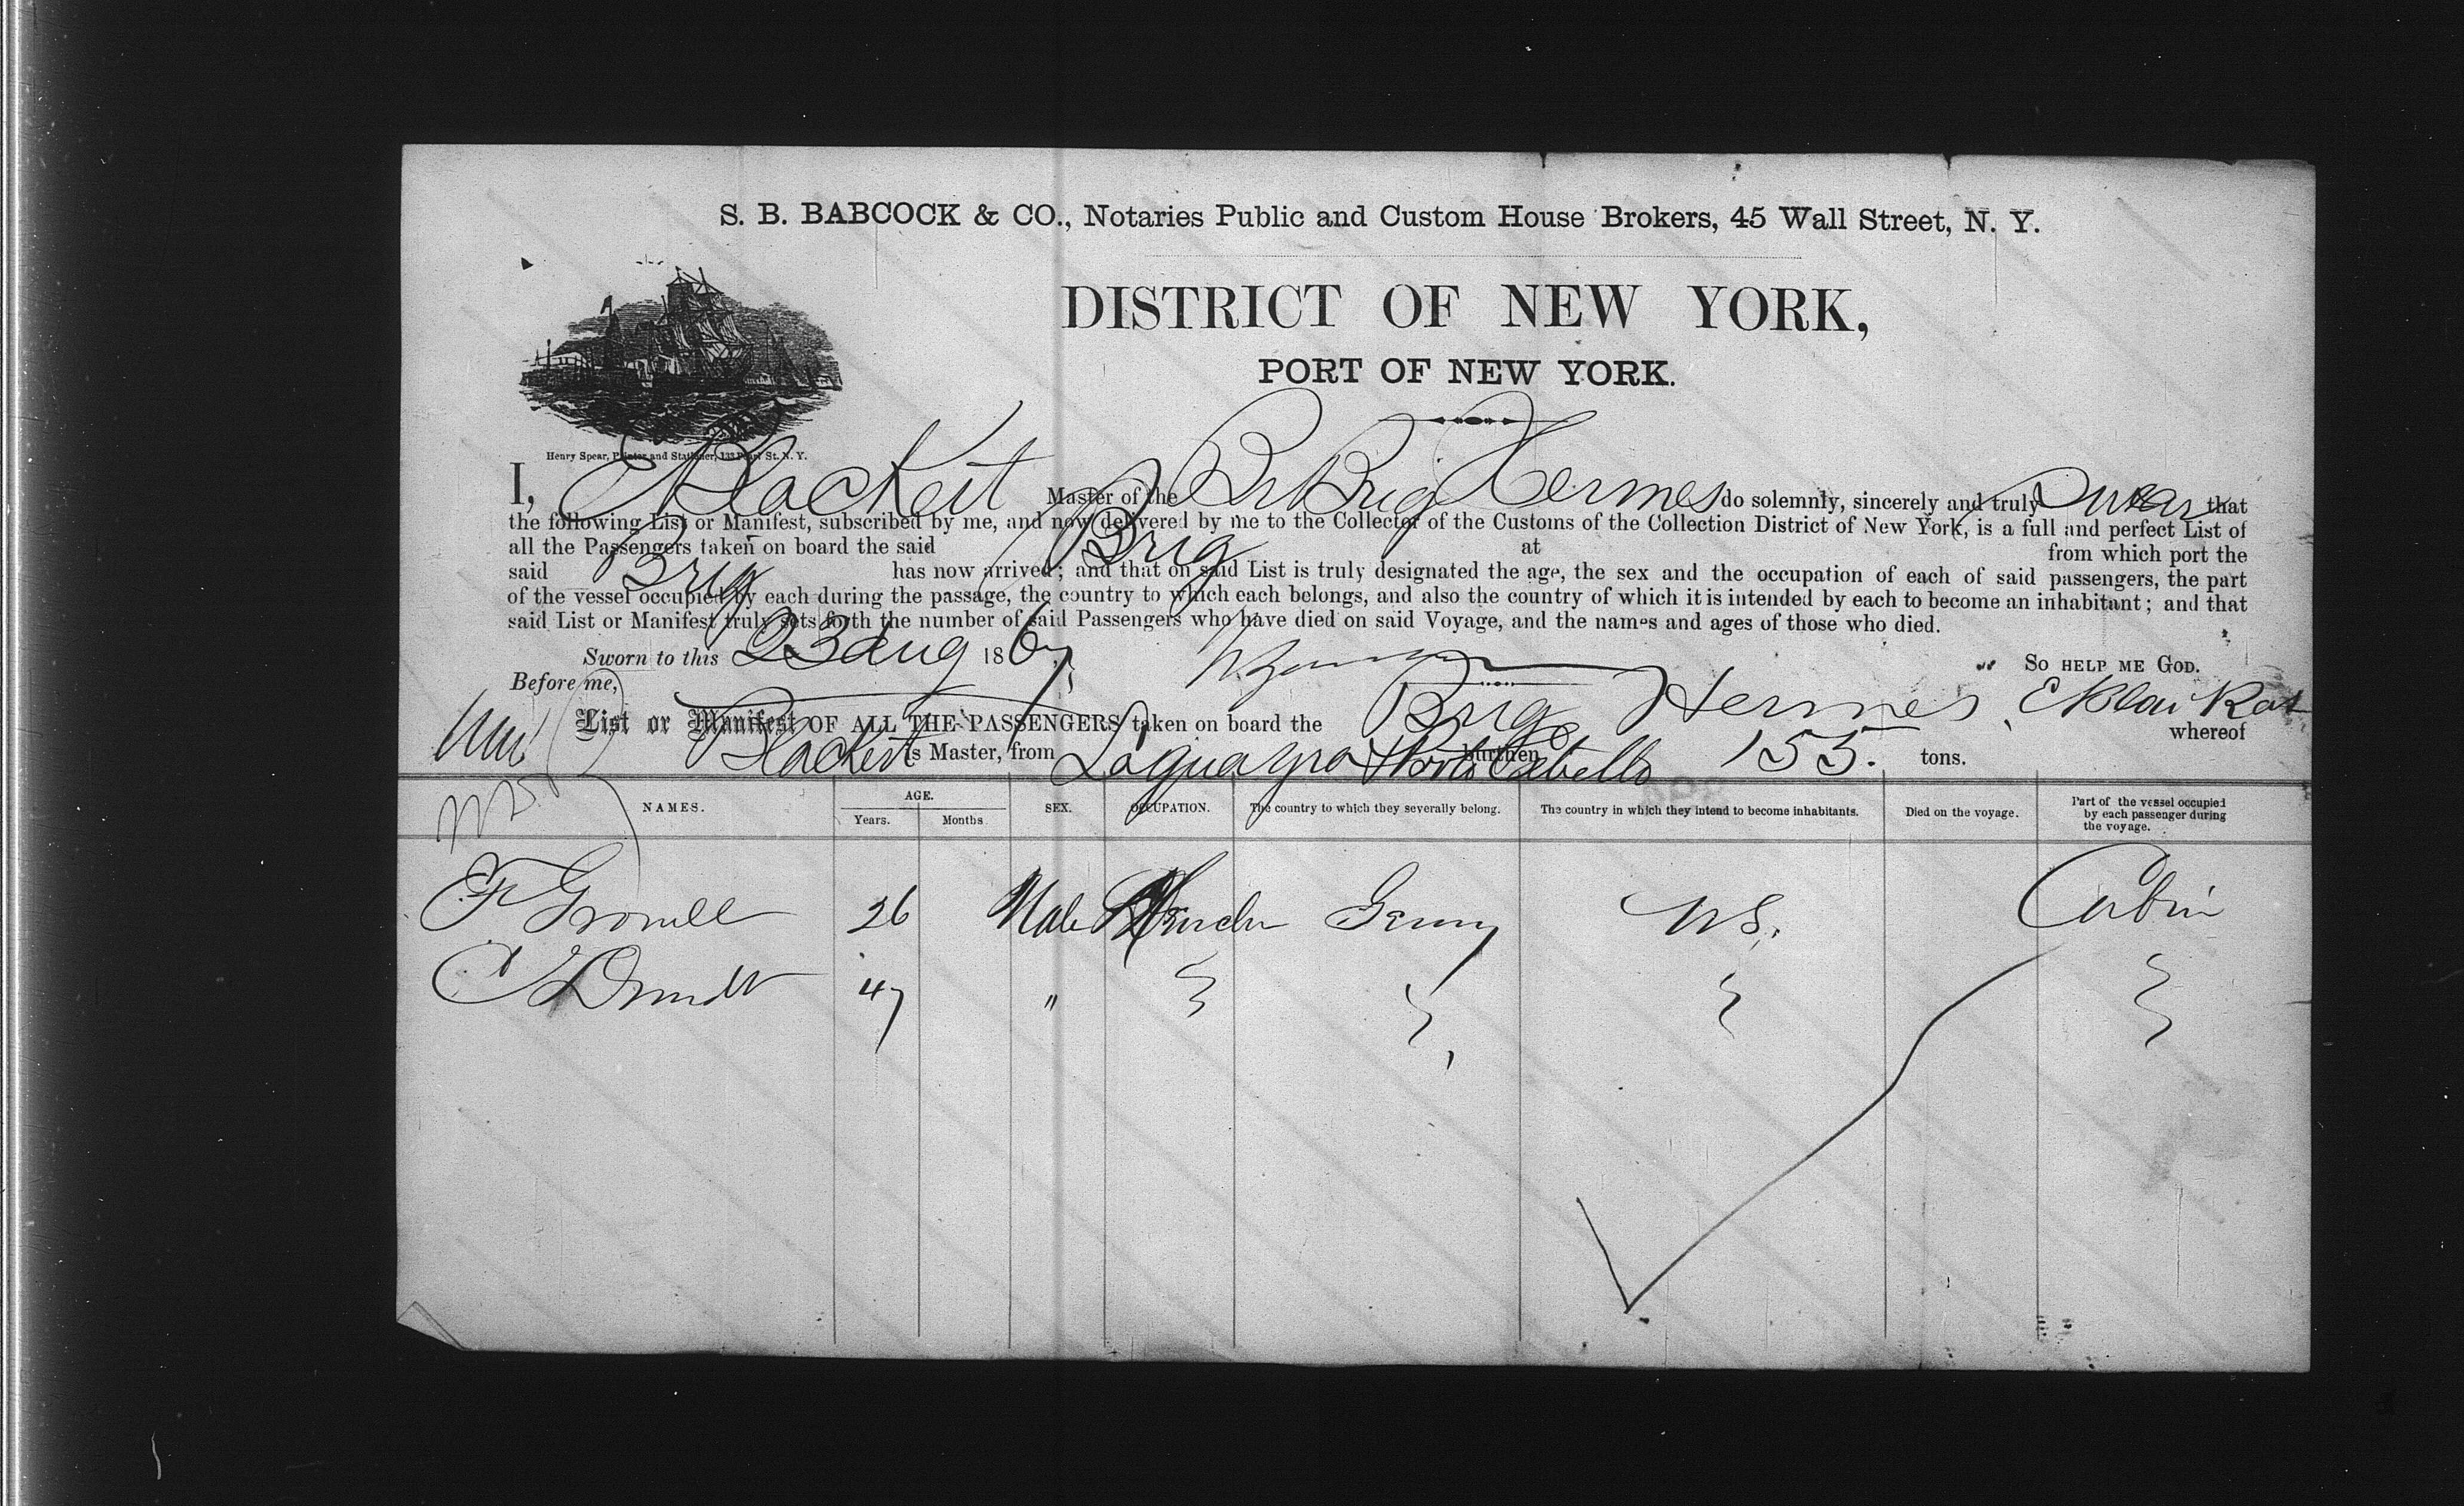 S. B. BABCOCK & CO., Notaries Public and Custom House Brokers, 45 Wall Street, N. Y.
DISTRICT OF NEW YORK,
PORT OF NEW YORK.
Henry Spear, Printer and Stationer, 133 Pearl St. N. Y.
I, E Blackett Master of the Br Brig Hermes do solemnly, sincerely and truly swear that
the following List or Manifest, subscribed by me, and now delivered by me to the Collector of the Customs of the Collection District of New York, is a full and perfect List of
all the Passengers taken on board the said Brig at from which port the
said Brig has now arrived; and that on said List is truly designated the age, the sex and the occupation of each of said passengers, the part
of the vessel occupied by each during the passage, the country to which each belongs, and also the country of which it is intended by each to become an inhabitant; and that
said List or Manifest truly sets forth the number of said Passengers who have died on said Voyage, and the names and ages of those who died.
Sworn to this 23 Aug 1867 So help me God.
Before me,
List or Manifest OF ALL THE PASSENGERS taken on board the Brig Hermes whereof
Blackett is Master, from Laguayra & Porto Cabello burthen 155. tons.
NAMES. AGE. Years. Months SEX. OCCUPATION. The country to which they severally belong. The country in which they intend to become inhabitants. Died on the voyage. Part of the vessel occupied by each passenger during the voyage.
26 Male Germy U S. Cabin
47 "